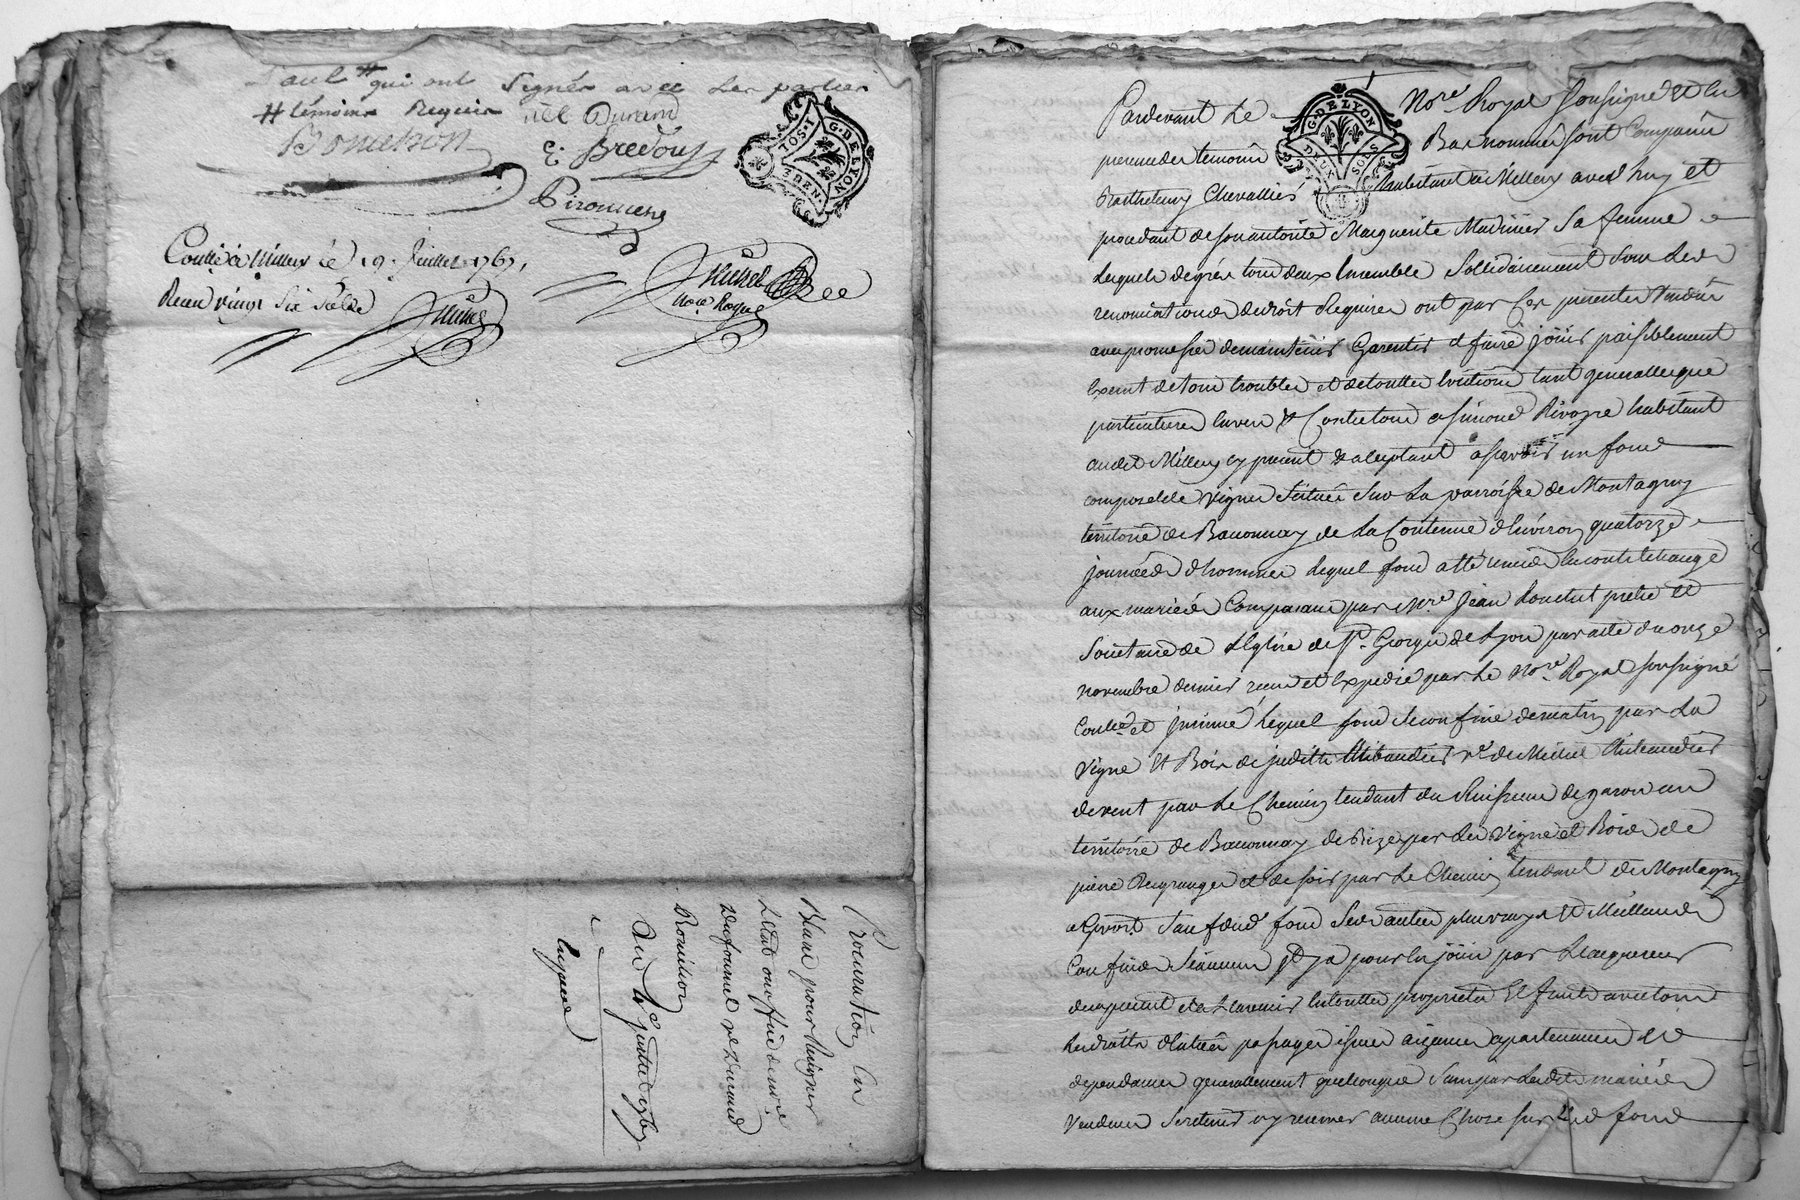 qui ont Signés avec Les parties
# témoins Requis Durand
Bonnchon
Bredoux
Pironnene
G·DE LYON
3 DEN.
Controllé à Millery le 19e Juillet 1767,
Reçu vingt Six Sols
Procuration En
Blanc pour Resigner
L'état
Durand
Au 4e juillet 1767
Expedié
Pardevant Le Nore. Royal Soussigné et les
G·DE LYON
DEUX SOLS
presence des temoins Bas nommés sont Comparus
Barthelemy Chevallier habitant à Millery avec luy et
procedant de son autorité Marguerite Marinier Sa femme
Lesquels de gré tous deux Ensemble Sollidairement Sous Les
renonciations de droit Requises ont par Ces presentes Vendu
avec promesse de maintenir Garentir et faire jouir paisiblement
Exempt de tous troubles et de touttes Evictions tant generalles que
particulieres Envers & Contre tous a Simond Rivoyre habitant
audit Millery cy present & acceptant a sçavoir un fond
composé de vigne Scituée Sur La parroisse de Montagny
territoire de Bauonnay de La Contenue d'Environ quatorze
journées d'hommes Lequel fond a été remis En contrechange
aux mariés Comparans par Mre. Jean prêtre et
Societaire de L'Eglise de St. George de Lyon par acte du onze
novembre dernier reçu et Expedié par Le Nore. Royal soussigné
Controllé et jnsinué Lequel fond Se confine de matin par La
Vigne & Bois de judith Thibaudier ve. de Michel Thibaudier
de vent par Le Chemin tendant du Ruisseau de garon au
territoire de Bauonnay de Bize par Les Vigne et Bois de
pierre Reigranger et de soir par Le Chemin tendant de Montagny
a Givors Sauf dud. fond Ses autres plus vrays & Meilleurs
Confins Si aucuns jl y a pour En jouir par L'acquereur
des a present et a L'avenir En toutte proprieté Et fruits avec tous
Ses droits d'Entrée passages issues aizances apartenances & 
dependances generallement quelconques Sans par Lesdits mariés
Vendeurs Se retenir ny reserver aucune Chose sur Led. fond